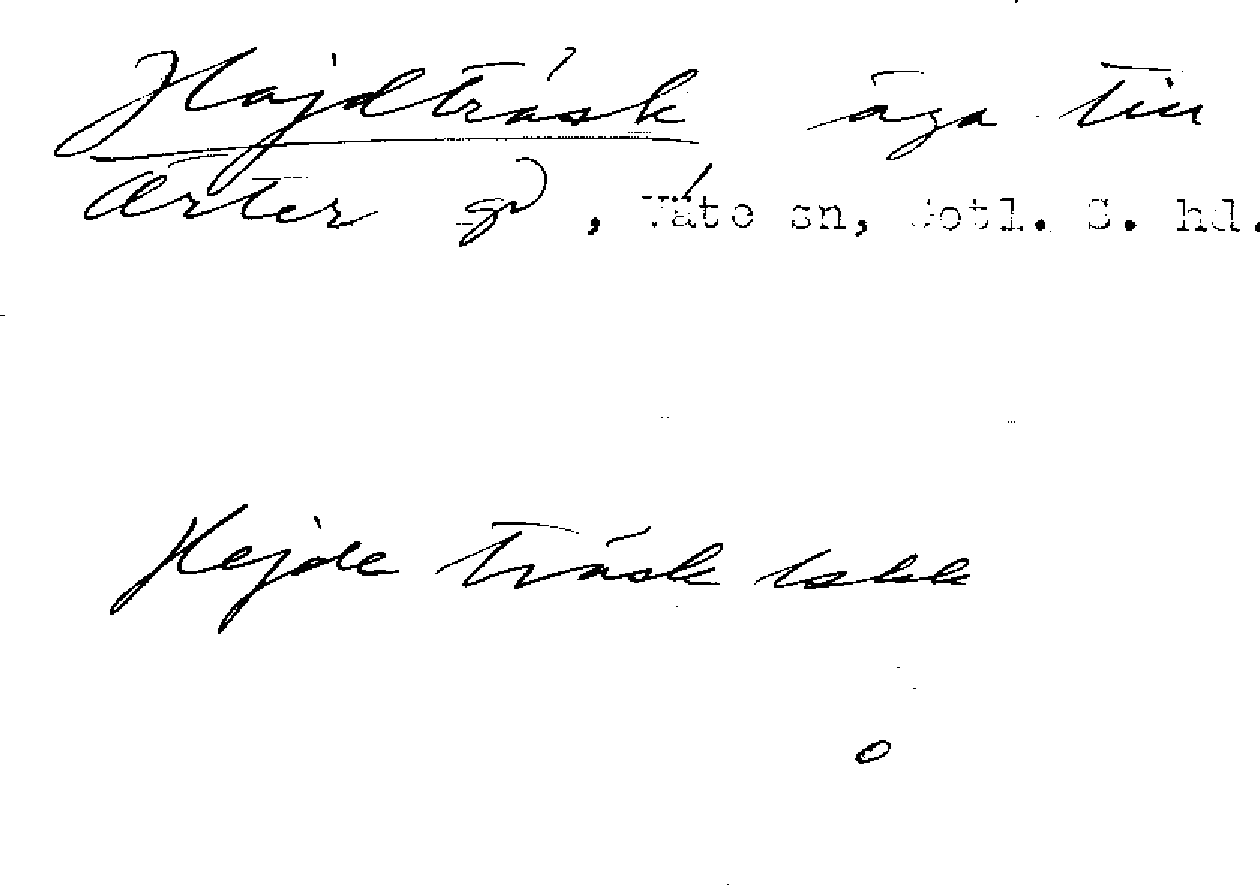 Hajdträsk äga till
Ärter gd, Väte sn, Gotl. S. hd.
Hejde träsk
o